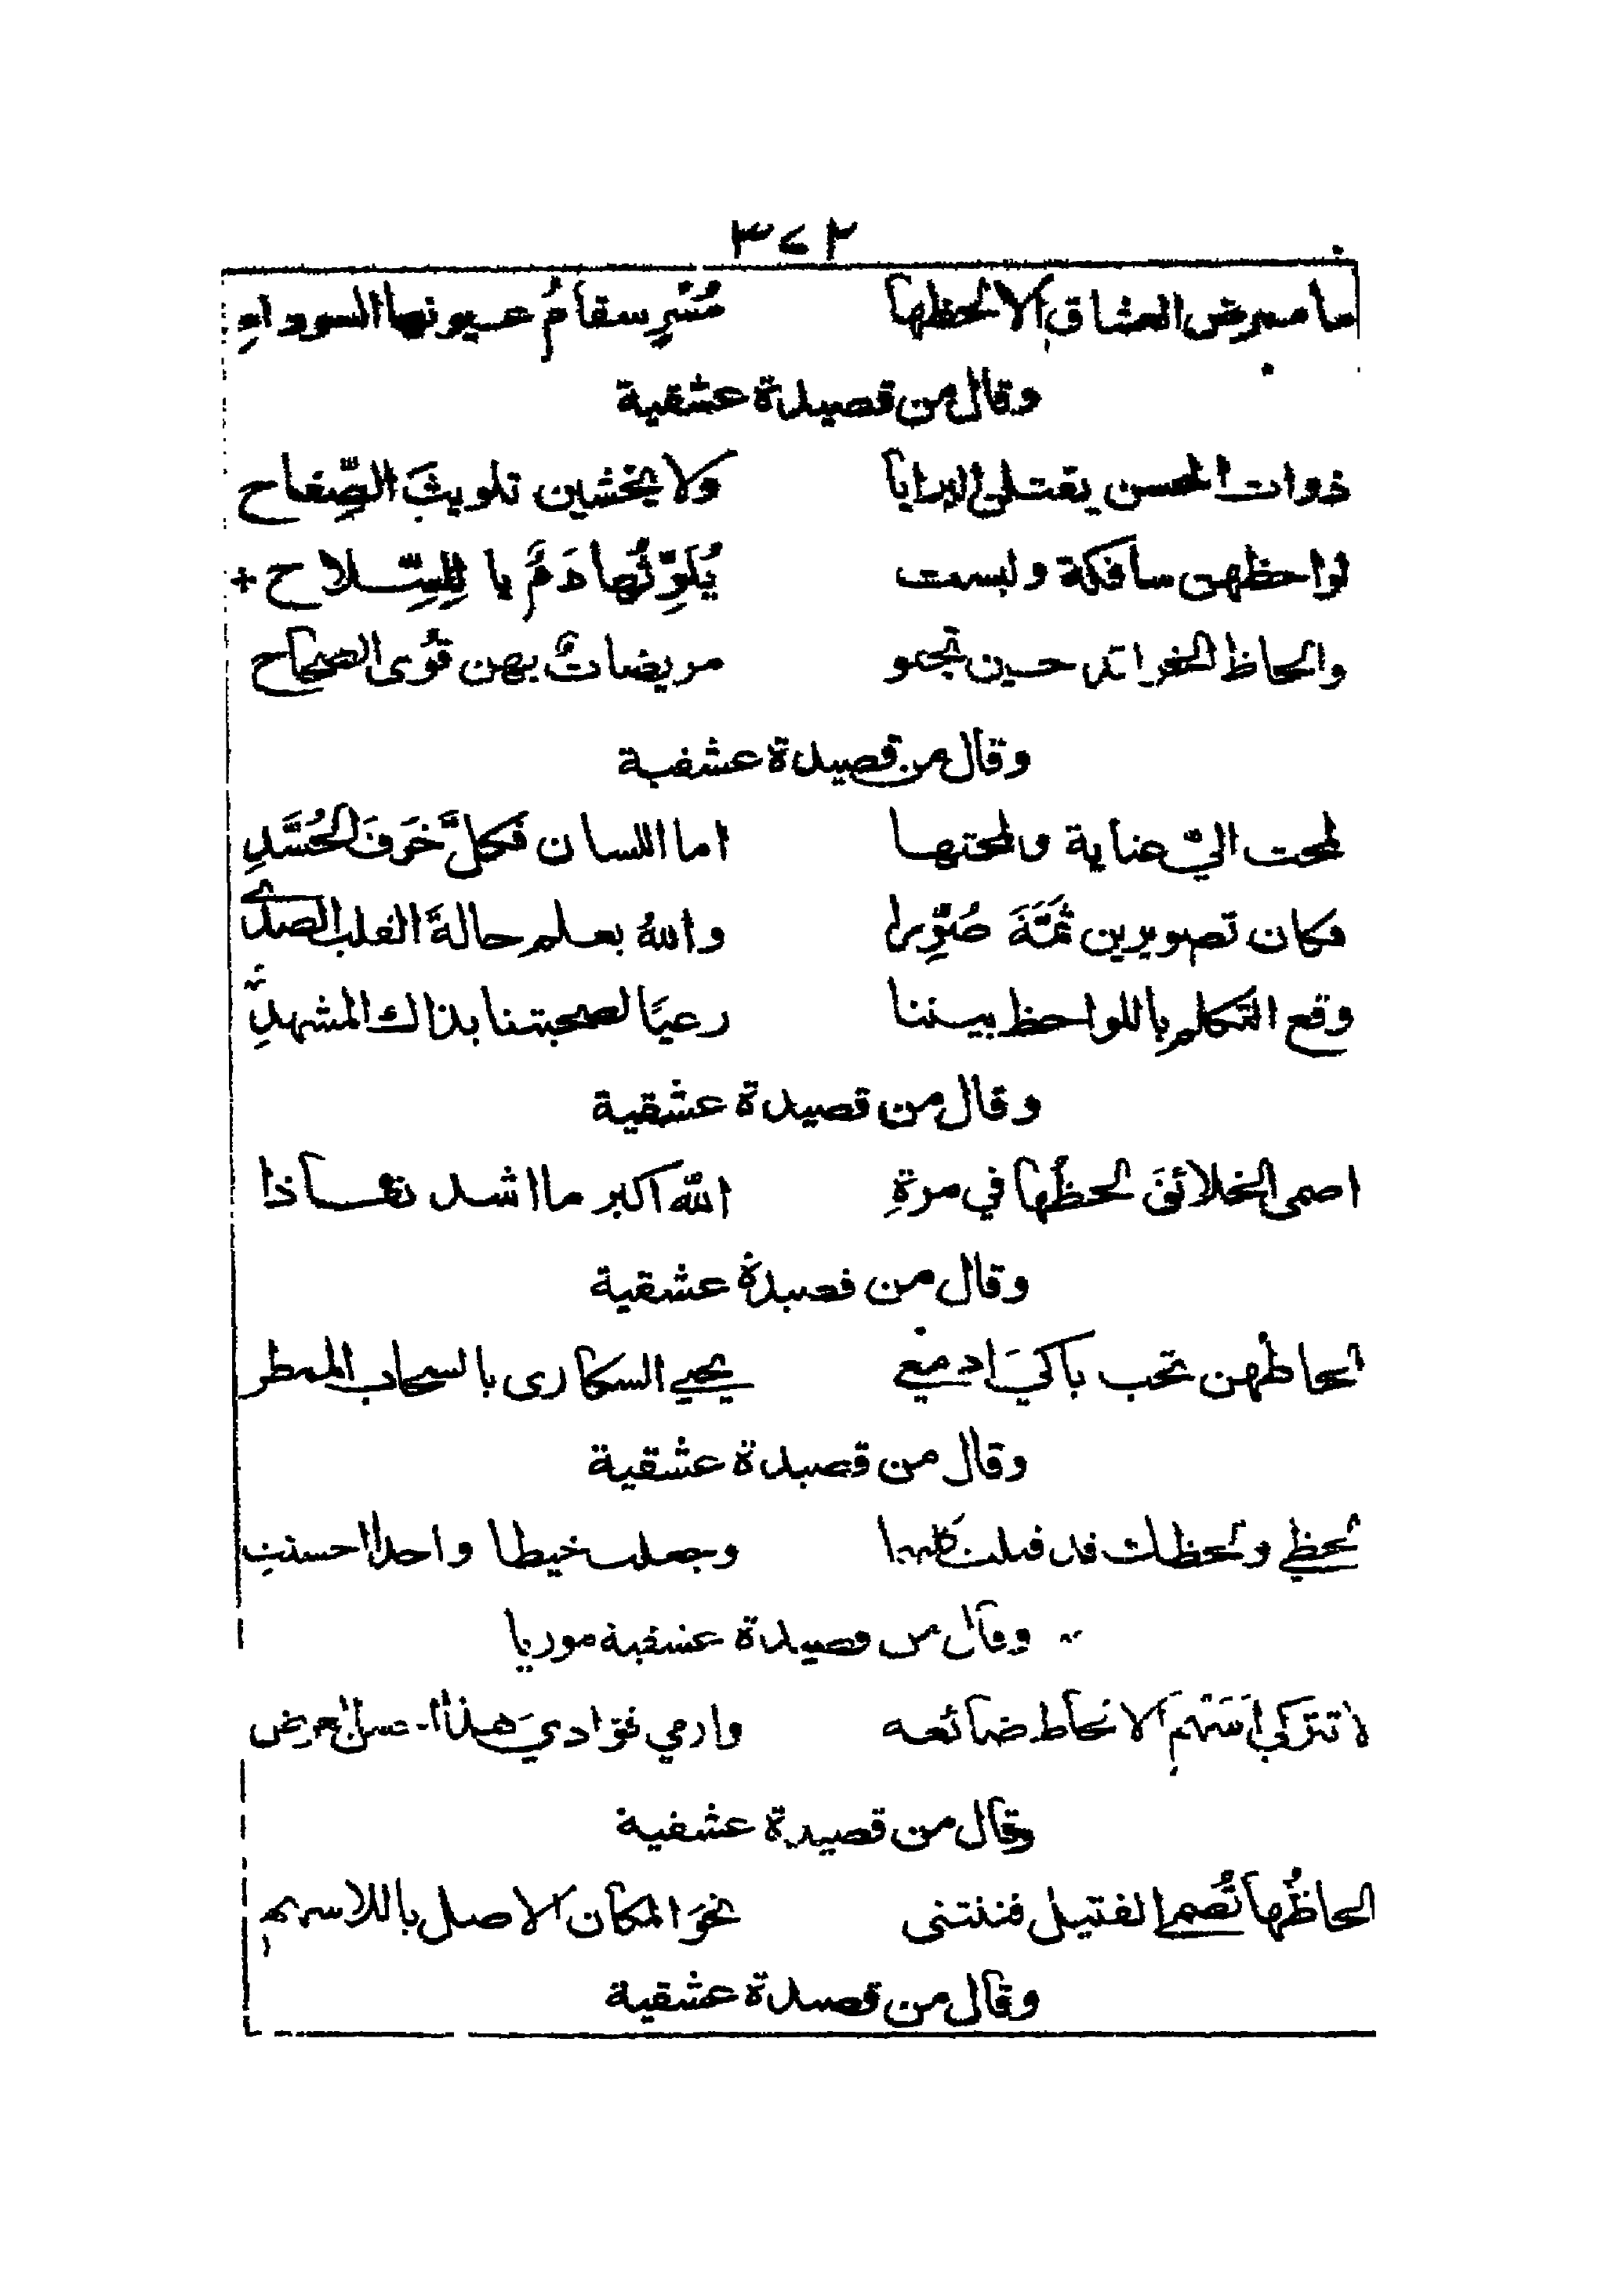 ٣٧٢
ما ممرض العشاق الا لحظها مُسْرٍ سقامُ عيونها السوداءِ
وقال من قصيدة عشقية
ذوات الحسن يقتلن البرايا ولا يخشين تلويثَ الصِّفاح
لواحظهن سافكة وليست يُلَوِّثُها دَمٌ يا لِلسِّلاح
والحاظ الخرائد حين تجلو مريضاتٌ بهن قُوى الصحاح
وقال من قصيدة عشقية
لمحت اليّ عناية ولمحتها اما اللسان فكلَّ خَوفَ الحُسَّدِ
فكان تصويرين ثَمَّةَ صُوِّرا واللهُ يعلم حالةَ القلب الصدي
وقع التكلم باللواحظ بيننا رعيًا لصحبتنا بذاك المشهدِ
وقال من قصيدة عشقية
اصمى الخلائقَ لحظُها في مرةٍ الله اكبر ما اشد نفاذا
وقال من قصيدة عشقية
الحاظهن تحب باكيَ ادمعي يحيي السكارى بالسحاب الممطر
وقال من قصيدة عشقية
لحظي ولحظات قد فتلت كليهما وجعلت خيطا واحدا احسنتِ
وقال من قصيدة عشقية موريا
لا تتركي اسهم الالحاظ ضائعه وارمي فؤادي هذا الغرض
وقال من قصيدة عشقية
الحاظُها تُصمي القتيل فتنثني نحوَ المكان الاصل باللاسهم
وقال من قصيدة عشقية